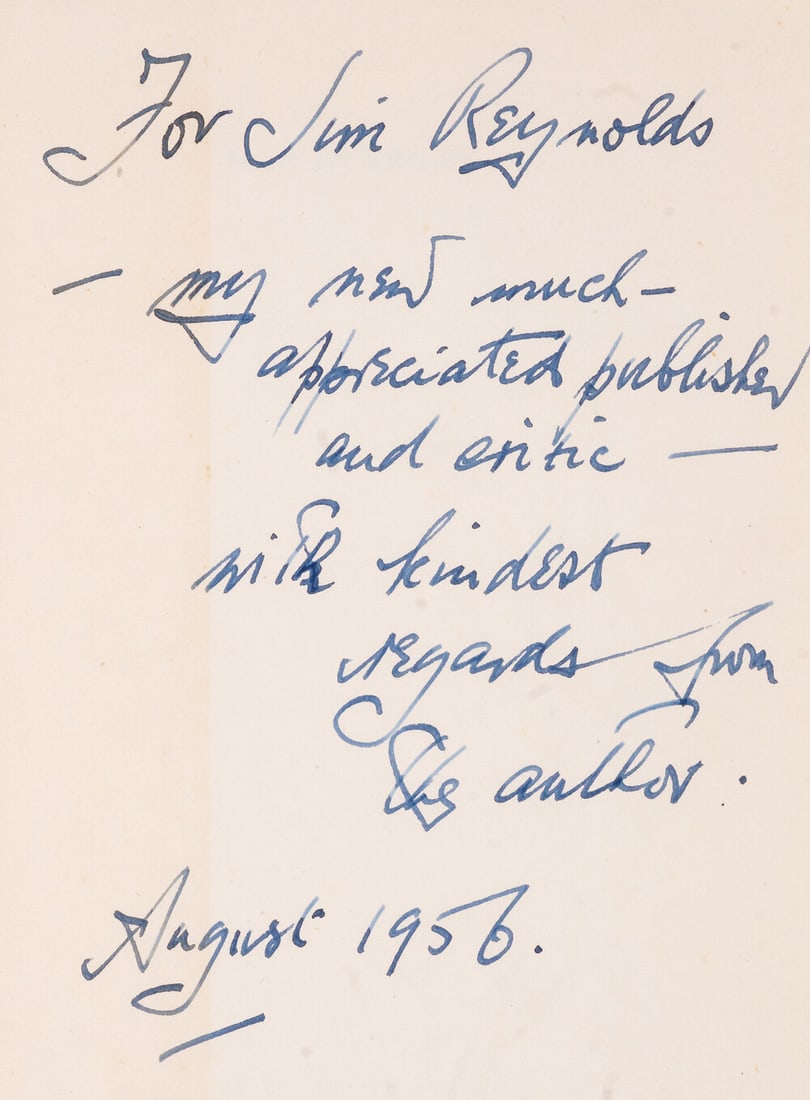 For Jim Reynolds
— my new much-
appreciated publisher
and critic —
with kindest
regards from
the author.
August 1956.